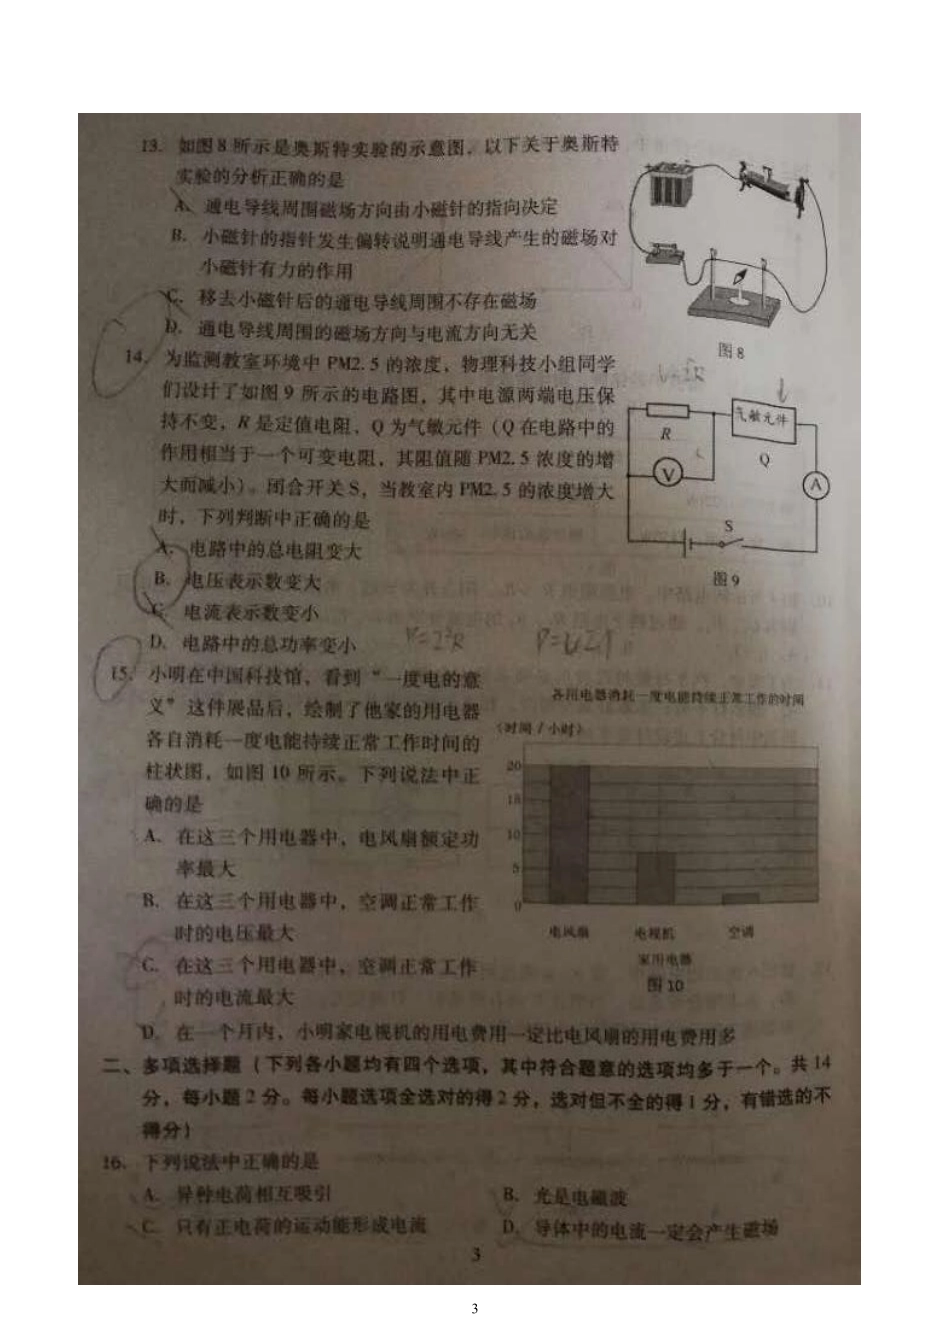 13. 如图8所示是奥斯特实验的示意图，以下关于奥斯特
实验的分析正确的是
A、通电导线周围磁场方向由小磁针的指向决定
B. 小磁针的指针发生偏转说明通电导线产生的磁场对
小磁针有力的作用
C. 移去小磁针后的通电导线周围不存在磁场
D. 通电导线周围的磁场方向与电流方向无关
图8
14. 为监测教室环境中 PM2.5 的浓度，物理科技小组同学
们设计了如图 9 所示的电路图，其中电源两端电压保
持不变，R 是定值电阻，Q 为气敏元件（Q 在电路中的
作用相当于一个可变电阻，其阻值随 PM2.5 浓度的增
大而减小）。闭合开关 S，当教室内 PM2.5 的浓度增大
时，下列判断中正确的是
A. 电路中的总电阻变大
B. 电压表示数变大
C. 电流表示数变小
D. 电路中的总功率变小
P=I²R
R
气敏元件
Q
V
A
S
图9
15. 小明在中国科技馆，看到“一度电的意
义”这件展品后，绘制了他家的用电器
各自消耗一度电能持续正常工作时间的
柱状图，如图 10 所示。下列说法中正
确的是
A. 在这三个用电器中，电风扇额定功
率最大
B. 在这三个用电器中，空调正常工作
时的电压最大
C. 在这三个用电器中，空调正常工作
时的电流最大
D. 在一个月内，小明家电视机的用电费用一定比电风扇的用电费用多
各用电器消耗一度电能持续正常工作的时间
（时间/小时）
20
15
10
5
0
电风扇 电视机 空调
家用电器
图10
二、多项选择题（下列各小题均有四个选项，其中符合题意的选项均多于一个。共 14
分，每小题 2 分。每小题选项全选对的得 2 分，选对但不全的得 1 分，有错选的不
得分）
16、下列说法中正确的是
A. 异种电荷相互吸引 B. 光是电磁波
C. 只有正电荷的运动能形成电流 D. 导体中的电流一定会产生磁场
3
3